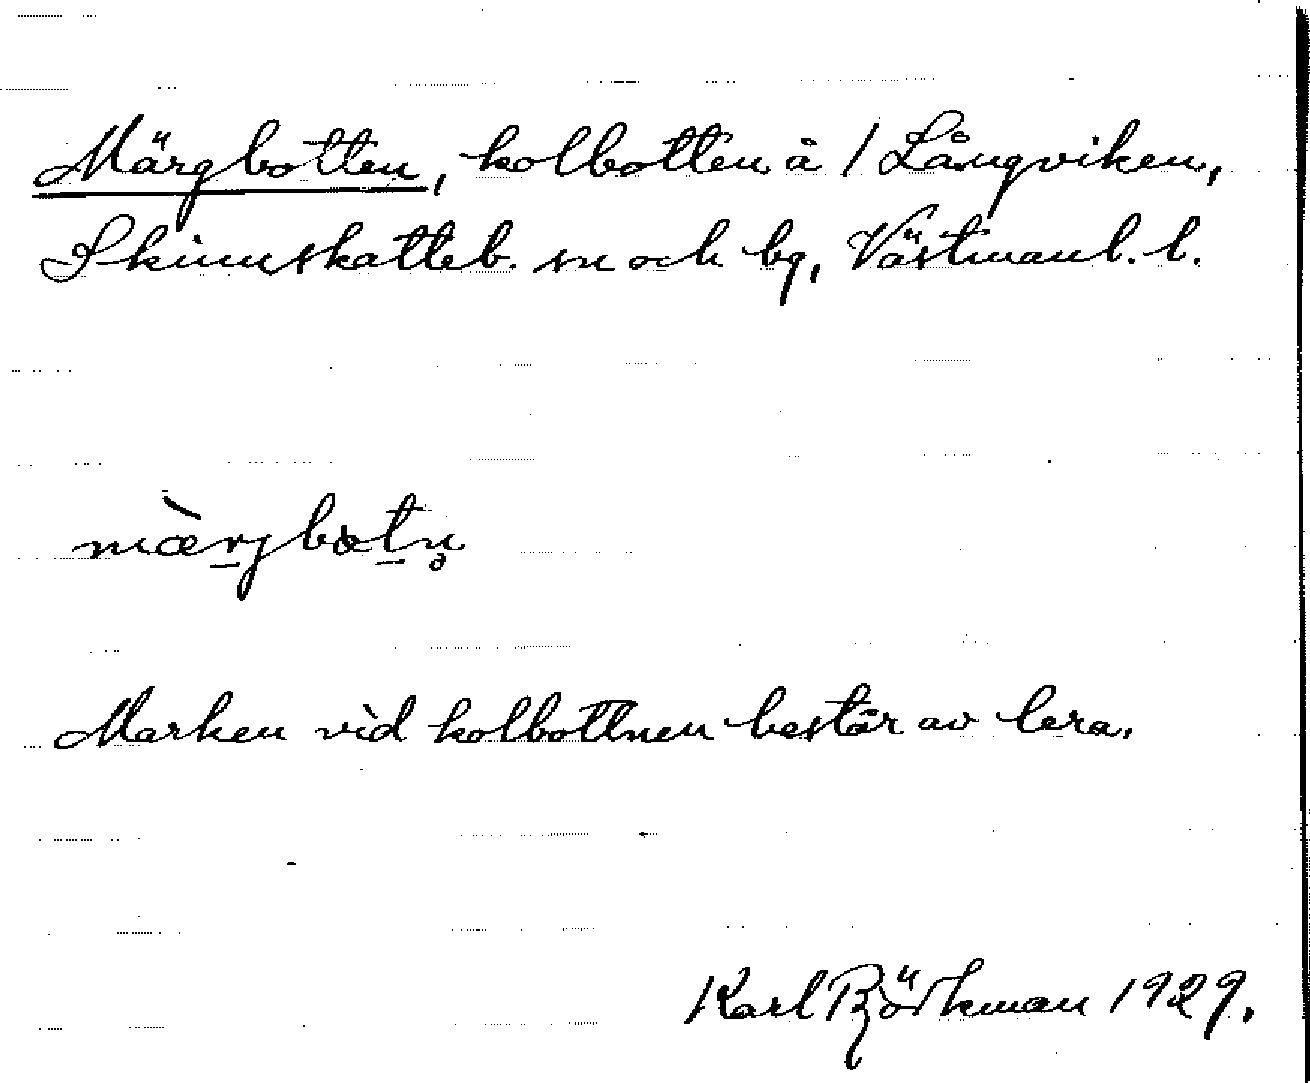 Märgbotten, kolbotten å 1 Långviken,
Skinnskatteb. sn och bg, Västmanl. l.
mæ̀rjbotn̥
Marken vid kolbottnen består av lera.
Karl Björkman 1929.